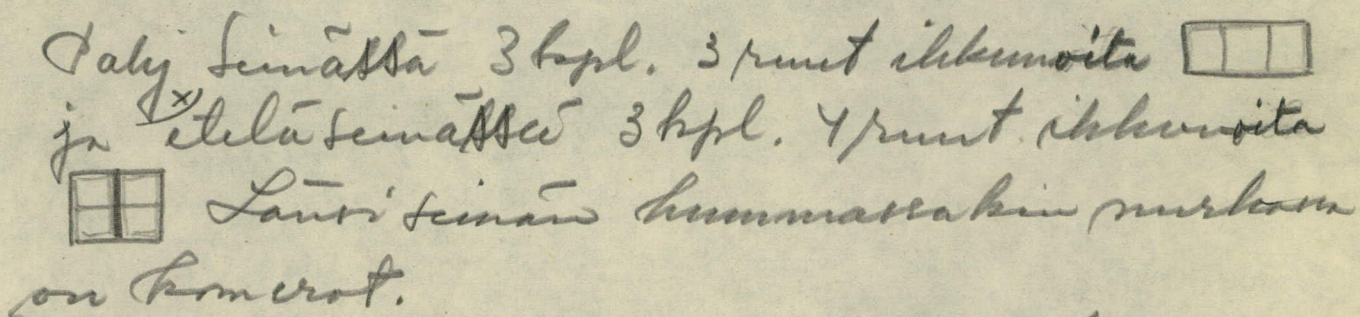 Pohj seinässä 3 kpl. 3 ruut ikkunoita
ja x) eteläseinässä 3 kpl. 4 ruut ikkunoita
Länsi seinän kummassakin nurkassa
on komerot.